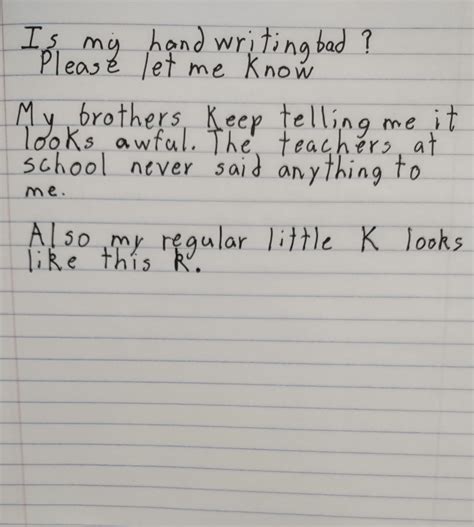 Is my handwriting bad ?
Please let me Know
My brothers Keep telling me it
looks awful. The teachers at
school never said anything to
me.
Also my regular little K looks
liKe this k.